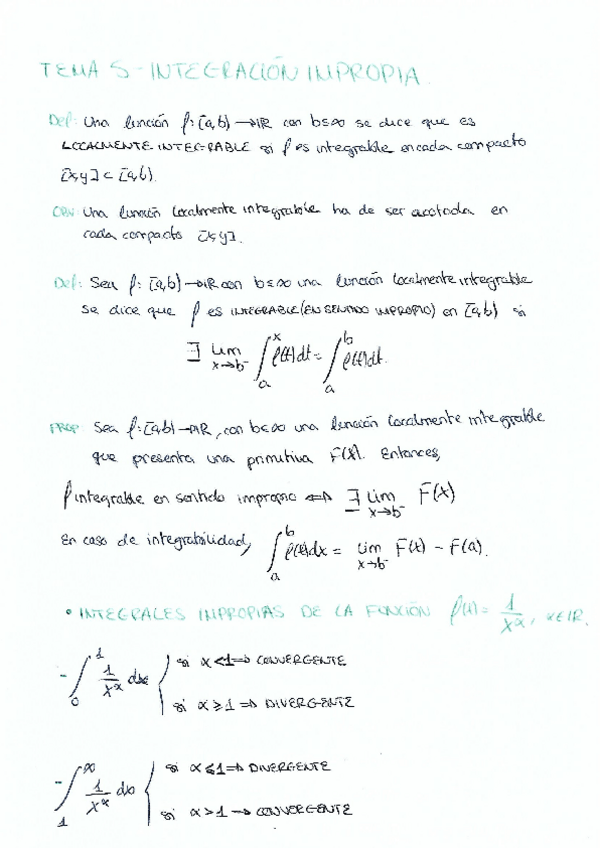 TEMA 5 - INTEGRACIÓN IMPROPIA.
Def: Una función f: [a,b) → ℝ con b≤∞ se dice que es
LOCALMENTE INTEGRABLE si f es integrable en cada compacto
[x,y] ⊂ [a,b).
OBV: Una función localmente integrable ha de ser acotada en
cada compacto [x,y].
Def: Sea f: [a,b) → ℝ con b≤∞ una función localmente integrable
se dice que f es INTEGRABLE (EN SENTIDO IMPROPIO) en [a,b) si
∃ lim_{x→b⁻} ∫_a^x f(t)dt = ∫_a^b f(t)dt.
PROP Sea f: [a,b) → ℝ, con b≤∞ una función localmente integrable
que presenta una primitiva F(x). Entonces,
f integrable en sentido impropio ⇔ ∃ lim_{x→b⁻} F(x)
En caso de integrabilidad, ∫_a^b f(x)dx = lim_{x→b⁻} F(x) - F(a).
• INTEGRALES IMPROPIAS DE LA FUNCIÓN f(x) = 1/x^α, α∈ℝ.
- ∫_0^1 1/x^α dx { si α<1 ⇒ CONVERGENTE
si α≥1 ⇒ DIVERGENTE
- ∫_1^∞ 1/x^α dx { si α≤1 ⇒ DIVERGENTE
si α>1 → CONVERGENTE